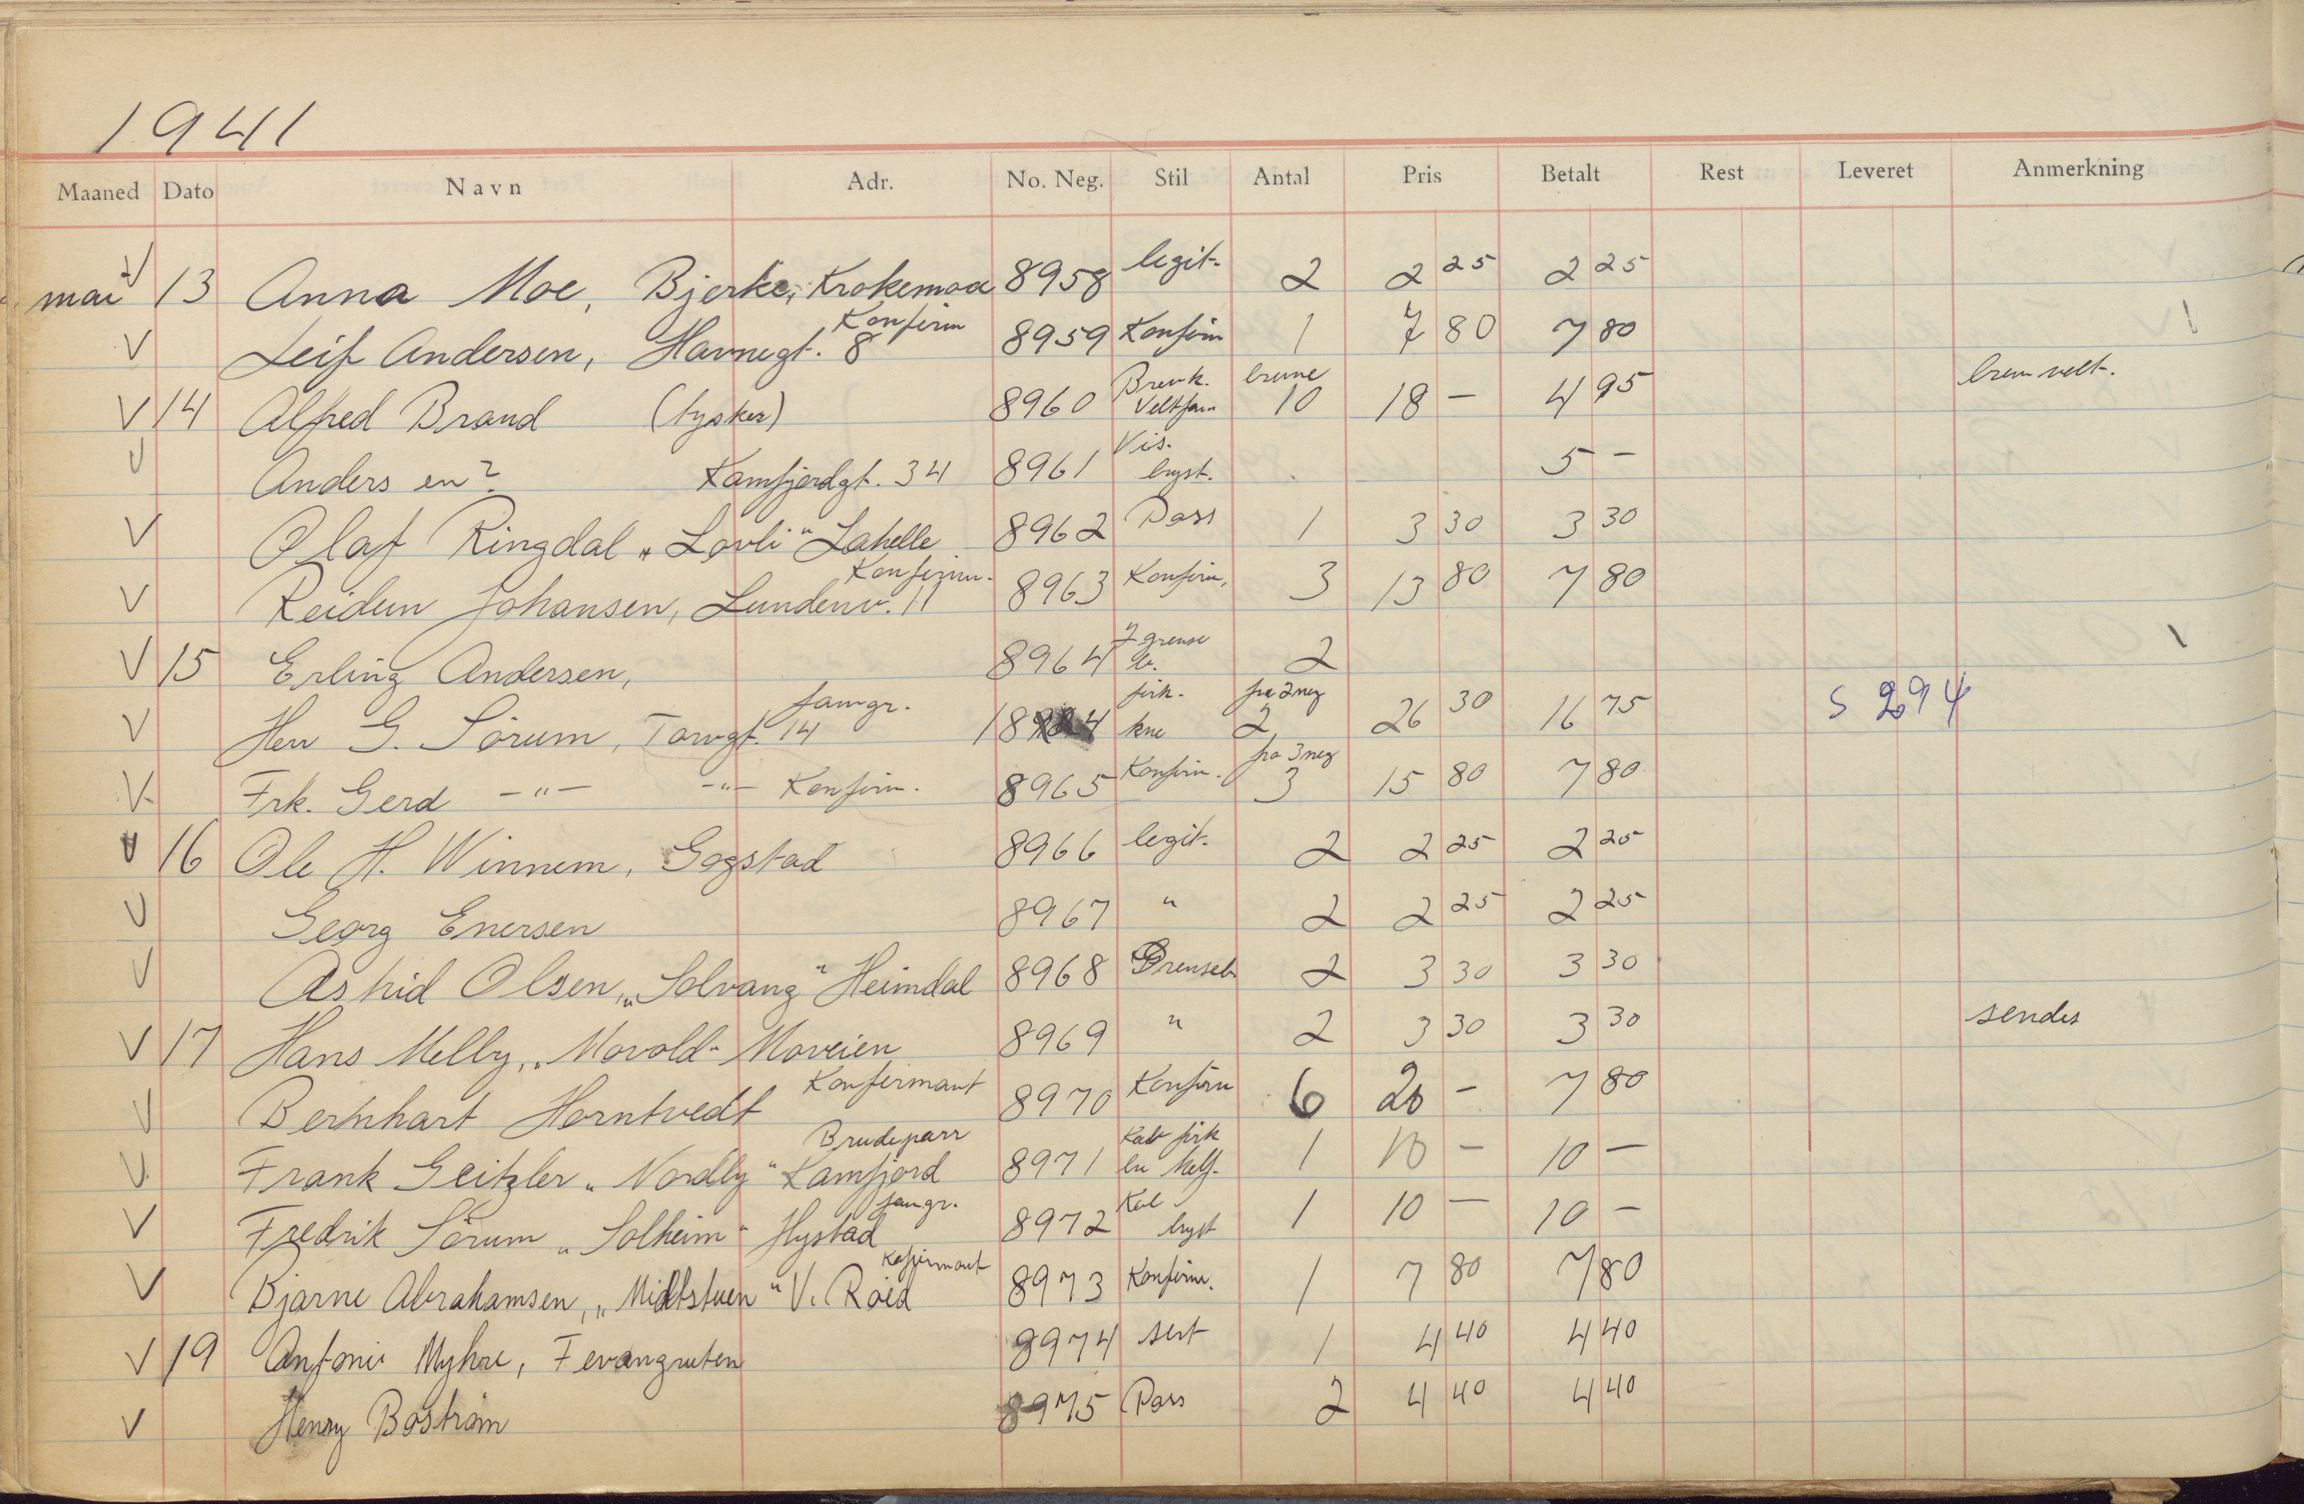 1941
Maaned Dato Navn Adr. No. Neg. Stil Antal Pris Betalt Rest Leveret Anmerkning
mai 13 Anna Moe, Bjerke, Krokemoa 8958 legit. 2 2 25 2 25
Konfirm
Leif Andersen, Havnegt. 8 8959 Konfirm 1 7 80 7 80
V 14 Alfred Brand (tysker) 8960 Brevk. Veltfarm brune 10 18 — 4 95
V Anders en? Kamfjordgt. 34 8961 Vis. bryst. 5 —
V Olaf Ringdal „Lovli" Lahelle 8962 Pass 1 3 30 3 30
Konfirm.
V Reidun Johansen, Lundenv. 11 8963 Konfirm. 3 13 80 7 80
V 15 Erling Andersen, 8964 grense b. 2
famgr.
V Herr G. Sörum, Torvgt. 14 kne fra 2 neg 2 26 30 16 75 S 294
V Frk. Gerd —"— —"— Konfirm. 8965 Konfirm. fra 3 neg 3 15 80 7 80
V 16 Ole H. Winnem, Gogstad 8966 legit. 2 2 25 2 25
V Georg Enersen 8967 " 2 2 25 2 25
V Astrid Olsen, „Solvang" Heimdal 8968 Grenseb 2 3 30 3 30
V 17 Hans Melby, „Movold" Moveien 8969 " 2 3 30 3 30 sendes
Konfirmant
V Bernhart Horntvedt 8970 Konfirm 6 20 — 7 80
Brudeparr
V Frank Geitzler „Nordby" Kamfjord 8971 Kab 1 10 — 10 —
famgr.
V Fredrik Sörum „Solheim" Hystad 8972 Kab bryst 1 10 — 10 —
V Bjarne Abrahamsen, „Midtstuen" V. Råed 8973 Konfirm. 1 7 80 7 80
V 19 Antonie Myhre, Fevangruten 8974 sert 1 4 40 4 40
V Henry Boström 8975 Pass 2 4 40 4 40